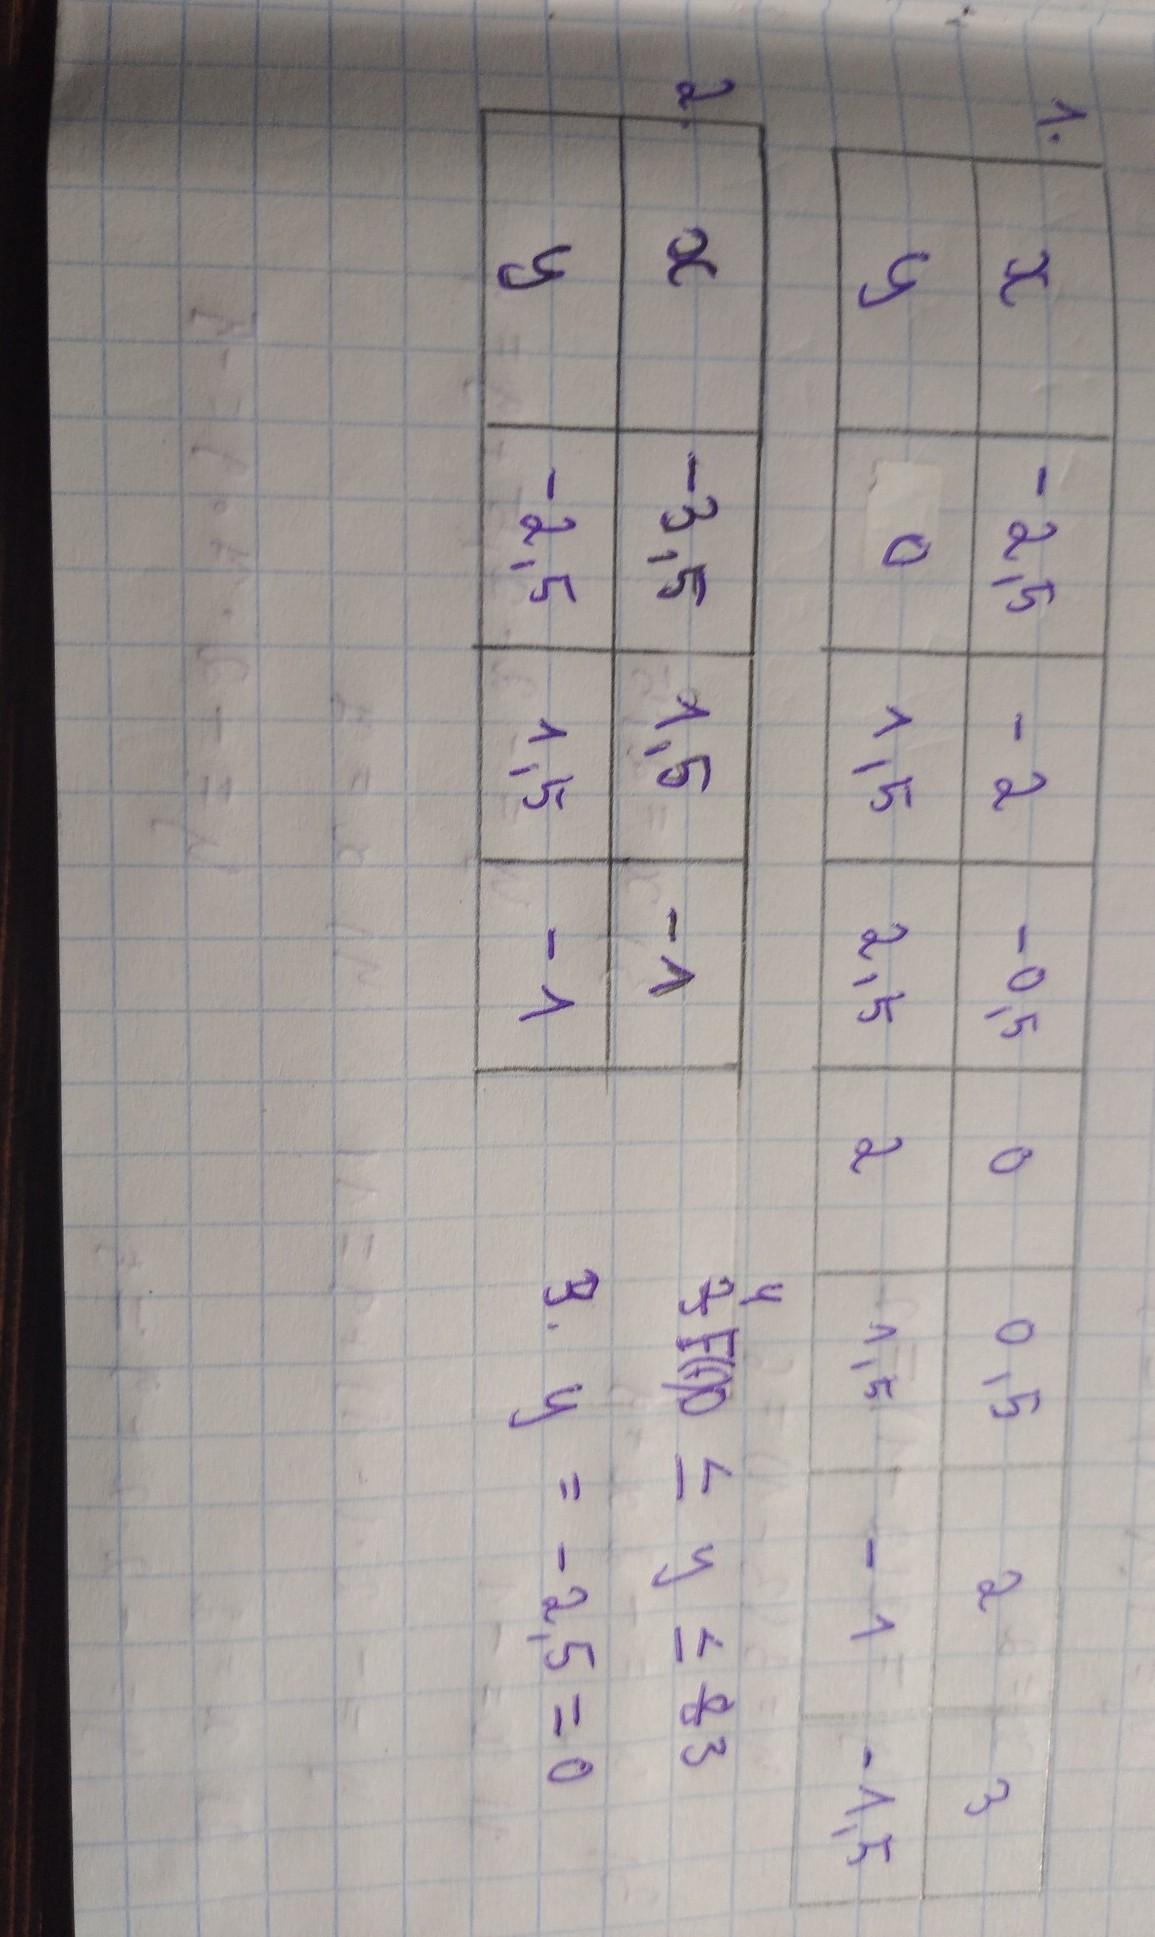 1.
x -2,5 -2 -0,5 0 0,5 2 3
y 0 1,5 2,5 2 1,5 -1 -1,5
2.
x -3,5 1,5 -1
y -2,5 1,5 -1
4
≤ y ≤ 3
3. y = -2,5 = 0